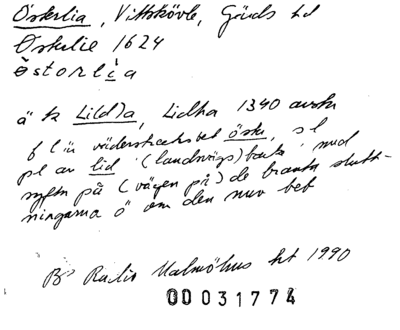 Österlia, Vittskövle, Gärds hd
Östulie 1624
östorlia
ä tz Lild)a, Lidha 1340 avskr
f l ü väderstrecksbet östr, s l
pl av lid (landsvägs)backe med
syftn på (vägen på) de branta slutt-
ningarna ö om den nuv beb
B° Radio Malmöhus ht 1990
00031774